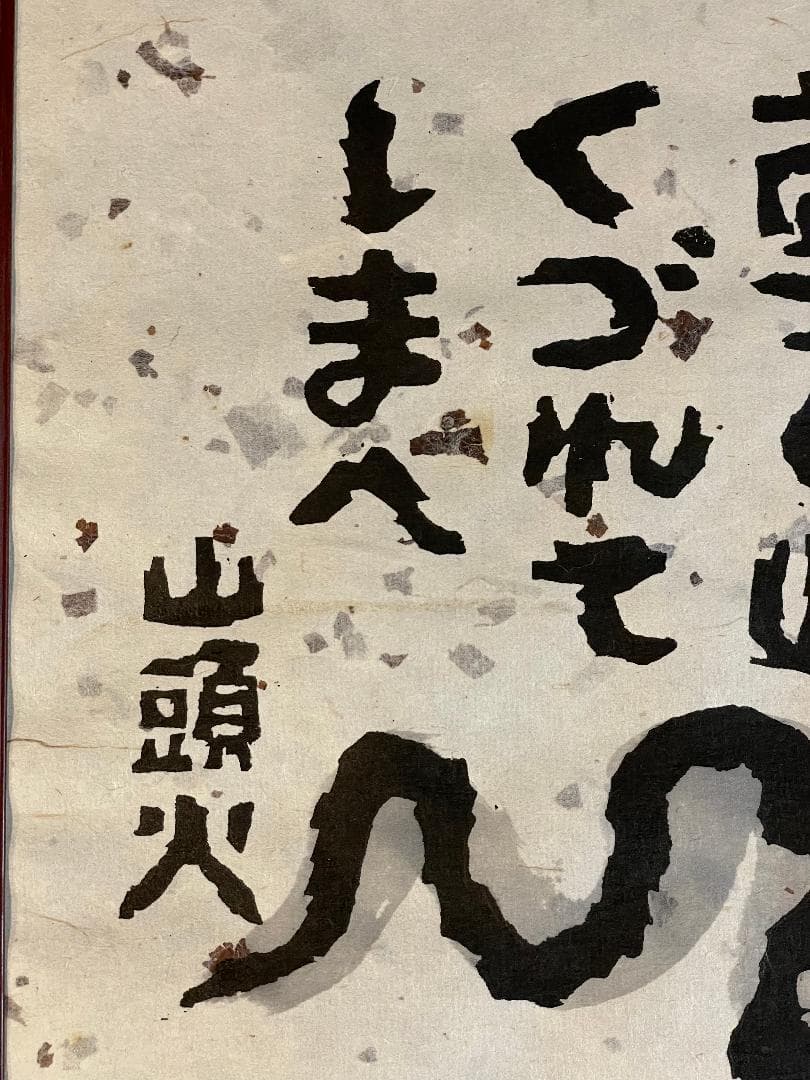 くづれて
しまへ
山頭火